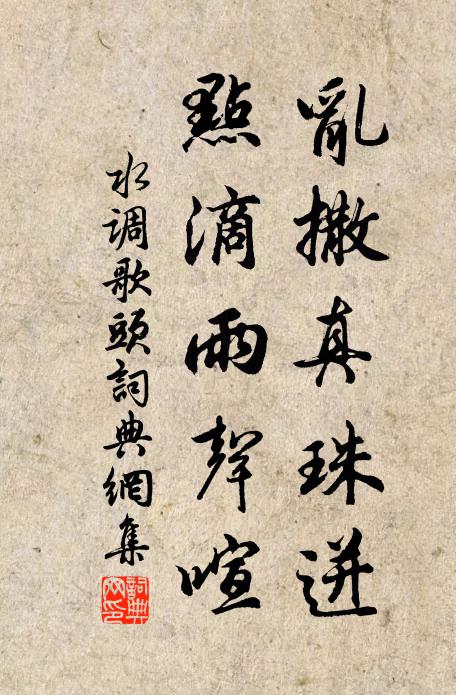 亂撒真珠迸
點滴雨聲喧
水调歌頭詞典網集
詞典網印